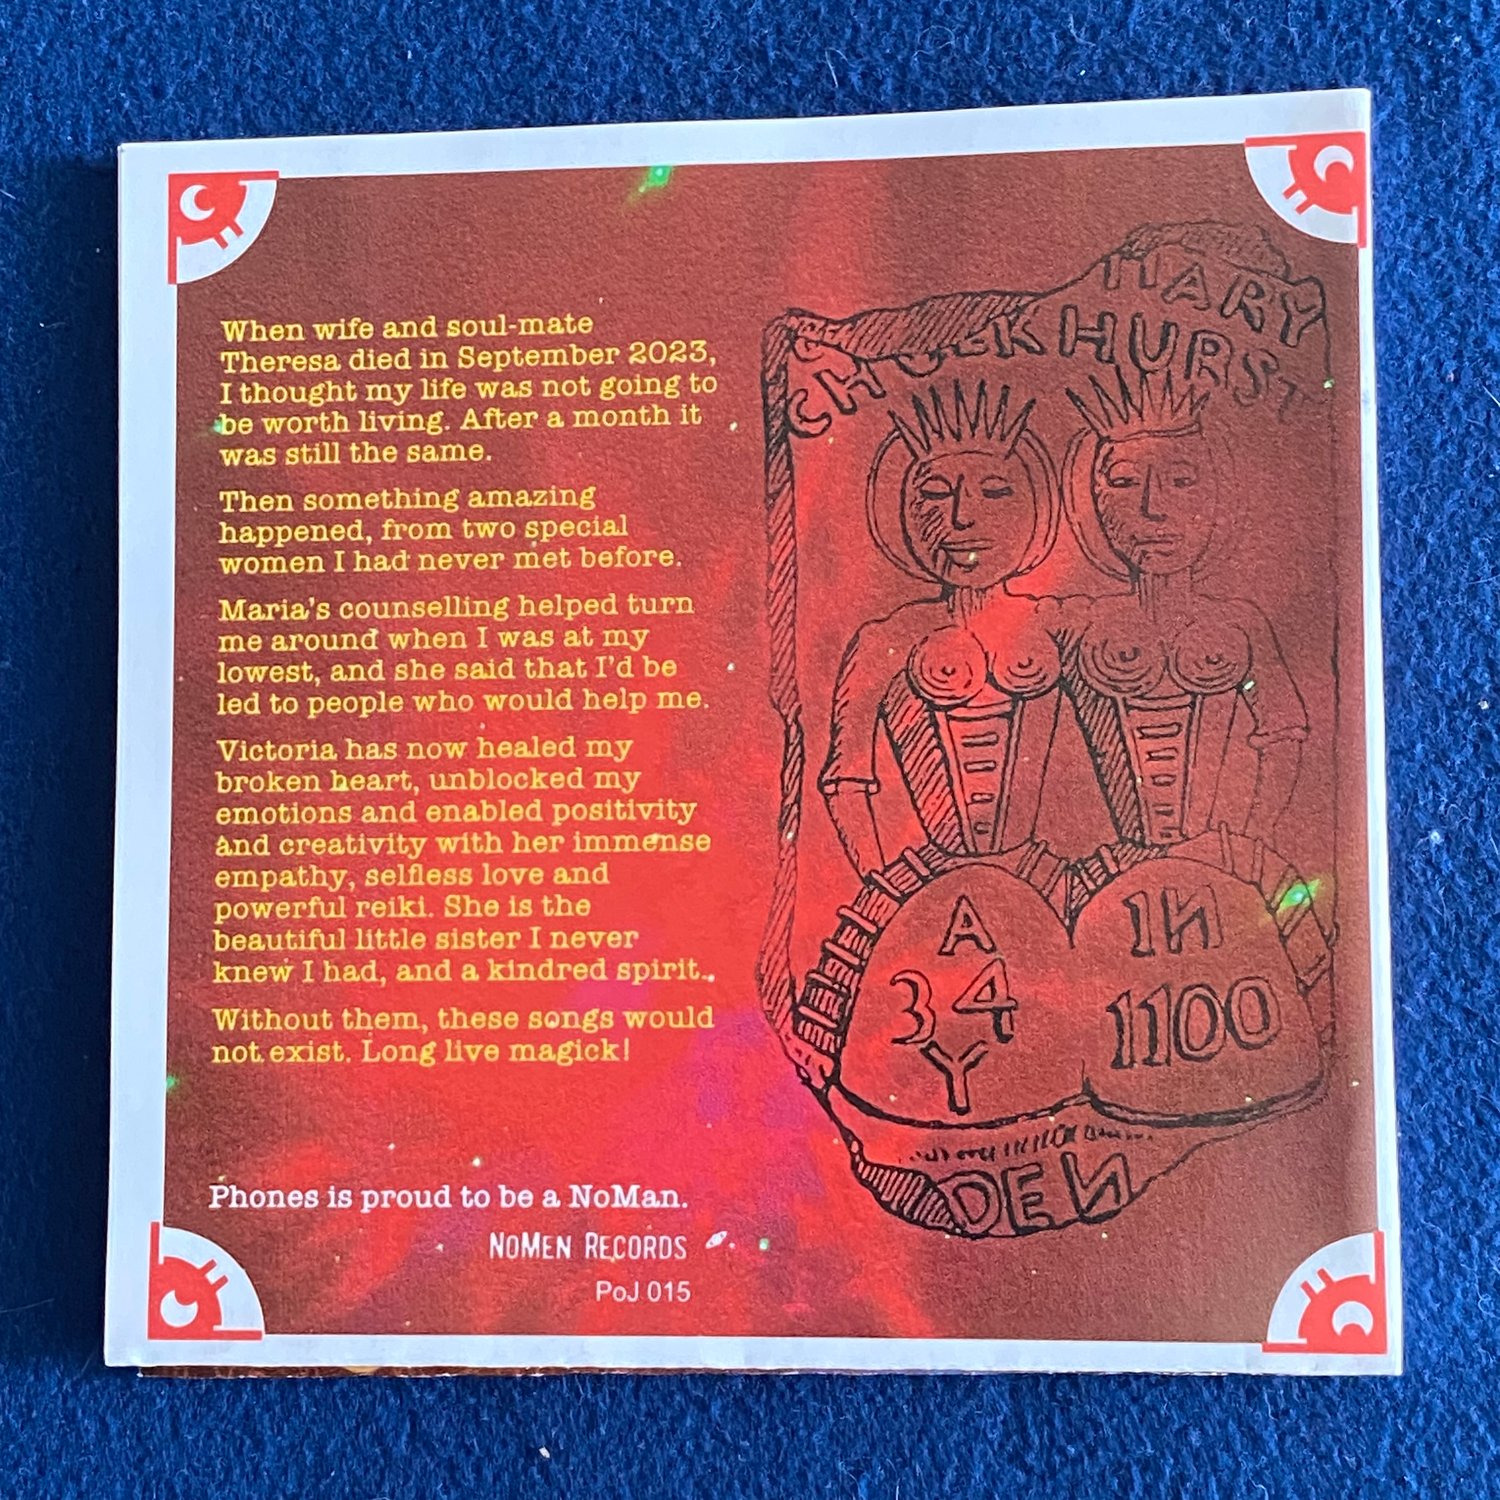 When wife and soul-mate
Theresa died in September 2023,
I thought my life was not going to
be worth living. After a month it
was still the same.
Then something amazing
happened, from two special
women I had never met before.
Maria's counselling helped turn
me around when I was at my
lowest, and she said that I'd be
led to people who would help me.
Victoria has now healed my
broken heart, unblocked my
emotions and enabled positivity
and creativity with her immense
empathy, selfless love and
powerful reiki. She is the
beautiful little sister I never
knew I had, and a kindred spirit.
Without them, these songs would
not exist. Long live magick!
Phones is proud to be a NoMan.
NOMEN RECORDS
PoJ 015
MARY
CHULKHURST
A
34
Y
IN
1100
DEN